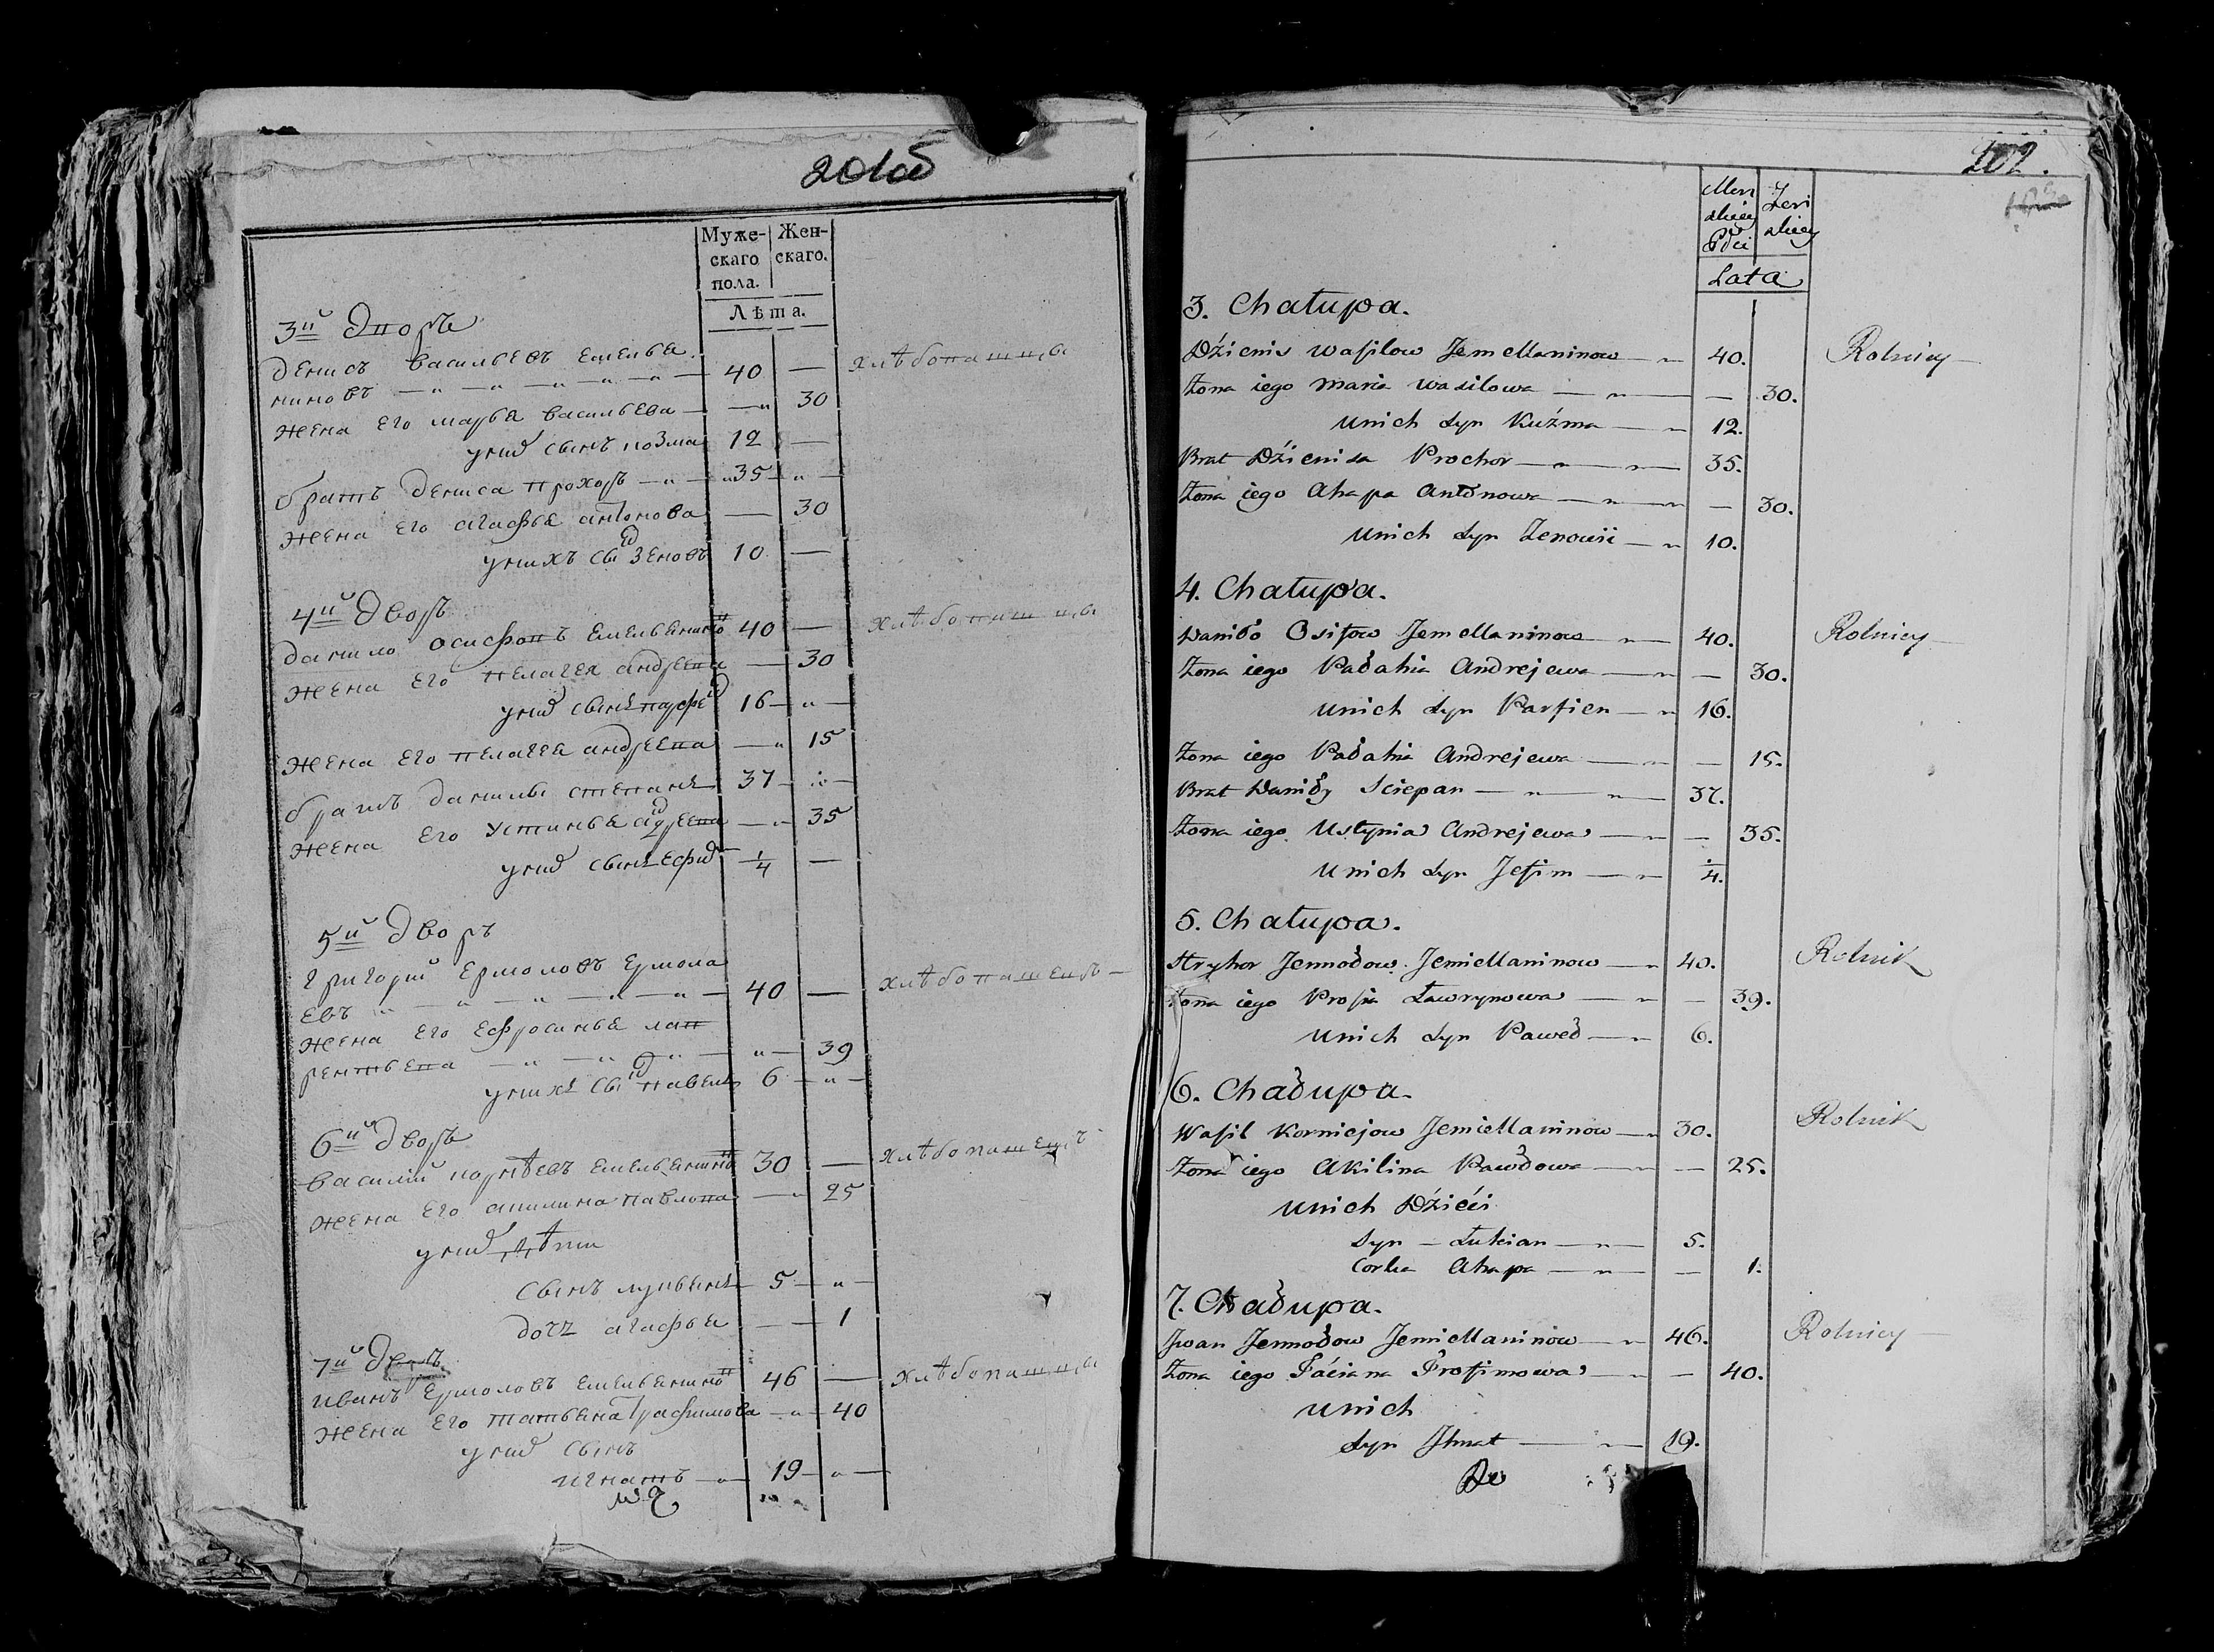 201об
Муже-
скаго
пола.
Жен-
скаго.
Лѣта.
3й Дворъ
Денисъ Васильевъ Емелья
ниновъ — „ — „ — „ — „ — 40 — хлѣбопашцы
жена его марья васильева — — „ 30
у них сынъ козма 12 —
братъ Дениса прохоръ — „ — „ 35 — „ —
жена его агафья антонова — 30
у нихъ сы н Зеновъ 10 —
4й Дворъ
Данило осифовъ Емельянино в 40 — хлѣбопашцы
жена его пелагея андреева — 30
у них сынъ парфе 16 — „ —
жена его пелагея андреева — „ 15
братъ данилы степанъ 37 — „ —
жена его устинья андреева — „ 35
у них сынъ Ефим 1/4 —
5й Дворъ
Григорий Ермоловъ Ермола
евъ „ — „ — „ — „ — „ — 40 — хлѣбопашецъ —
жена его ефросинья лав
рентьева — „ — „ — „ — „ — 39
у нихъ сы н павелъ 6 — „ —
6й Дворъ
василий корнѣевъ Емельянино в 30 — хлѣбопашецъ
жена его акилина павлова — „ 25
у них дѣти
сынъ лукьянъ 5 — „ —
дочь агафья — 1
7й Дворъ
иванъ Ермоловъ Емельянино в 46 — хлѣбопашцы
жена его татьяна трафимова — „ 40
у них сынъ
игнатъ — „ — 19 — „ —
202.
Lata
3. Chałupa.
Dźienis Wasilow Jemellaninow — „ 40. Rolnicy —
Żona iego Maria Wasilowa — „ — — 30.
Unich Syn Kuźma — „ 12.
Brat Dźienisa Prochor — „ — „ — 35.
Żona iego Ahapa Antonowa — „ — „ — 30.
Unich Syn Zenowii — „ 10.
4. Chałupa.
Daniło Osifow Jemellaninow — „ 40. Rolnicy —
Żona iego Pałahia Andrejewa — „ — 30.
Unich Syn Parfien — „ 16.
Żona iego Pałahia Andrejewa — „ — 15.
Brat Daniły Sciepan — „ — „ — 37.
Żona iego Ustynia Andrejewa — „ — 35.
Unich Syn Jefim — „ — 1/4.
5. Chałupa.
Hryhor Jermołow Jemiellaninow — „ 40. Rolnik
Żona iego Prosia Ławrynowa — „ — 39.
Unich Syn Paweł — „ 6.
6. Chałupa.
Wasil Korniejow Jemiellaninow — „ 30. Rolnik
Żona iego Akilina Pawłowa — „ — 25.
Unich Dźiéći
Syn — Łukian — „ — 5.
Corka Ahapa — „ — — 1.
7. Chałupa.
Jwan Jermołow Jemiellaninow — „ 46. Rolnicy —
Żona iego Taciana Trofimowa — „ — 40.
Unich
Syn Jhnat — „ — 19.